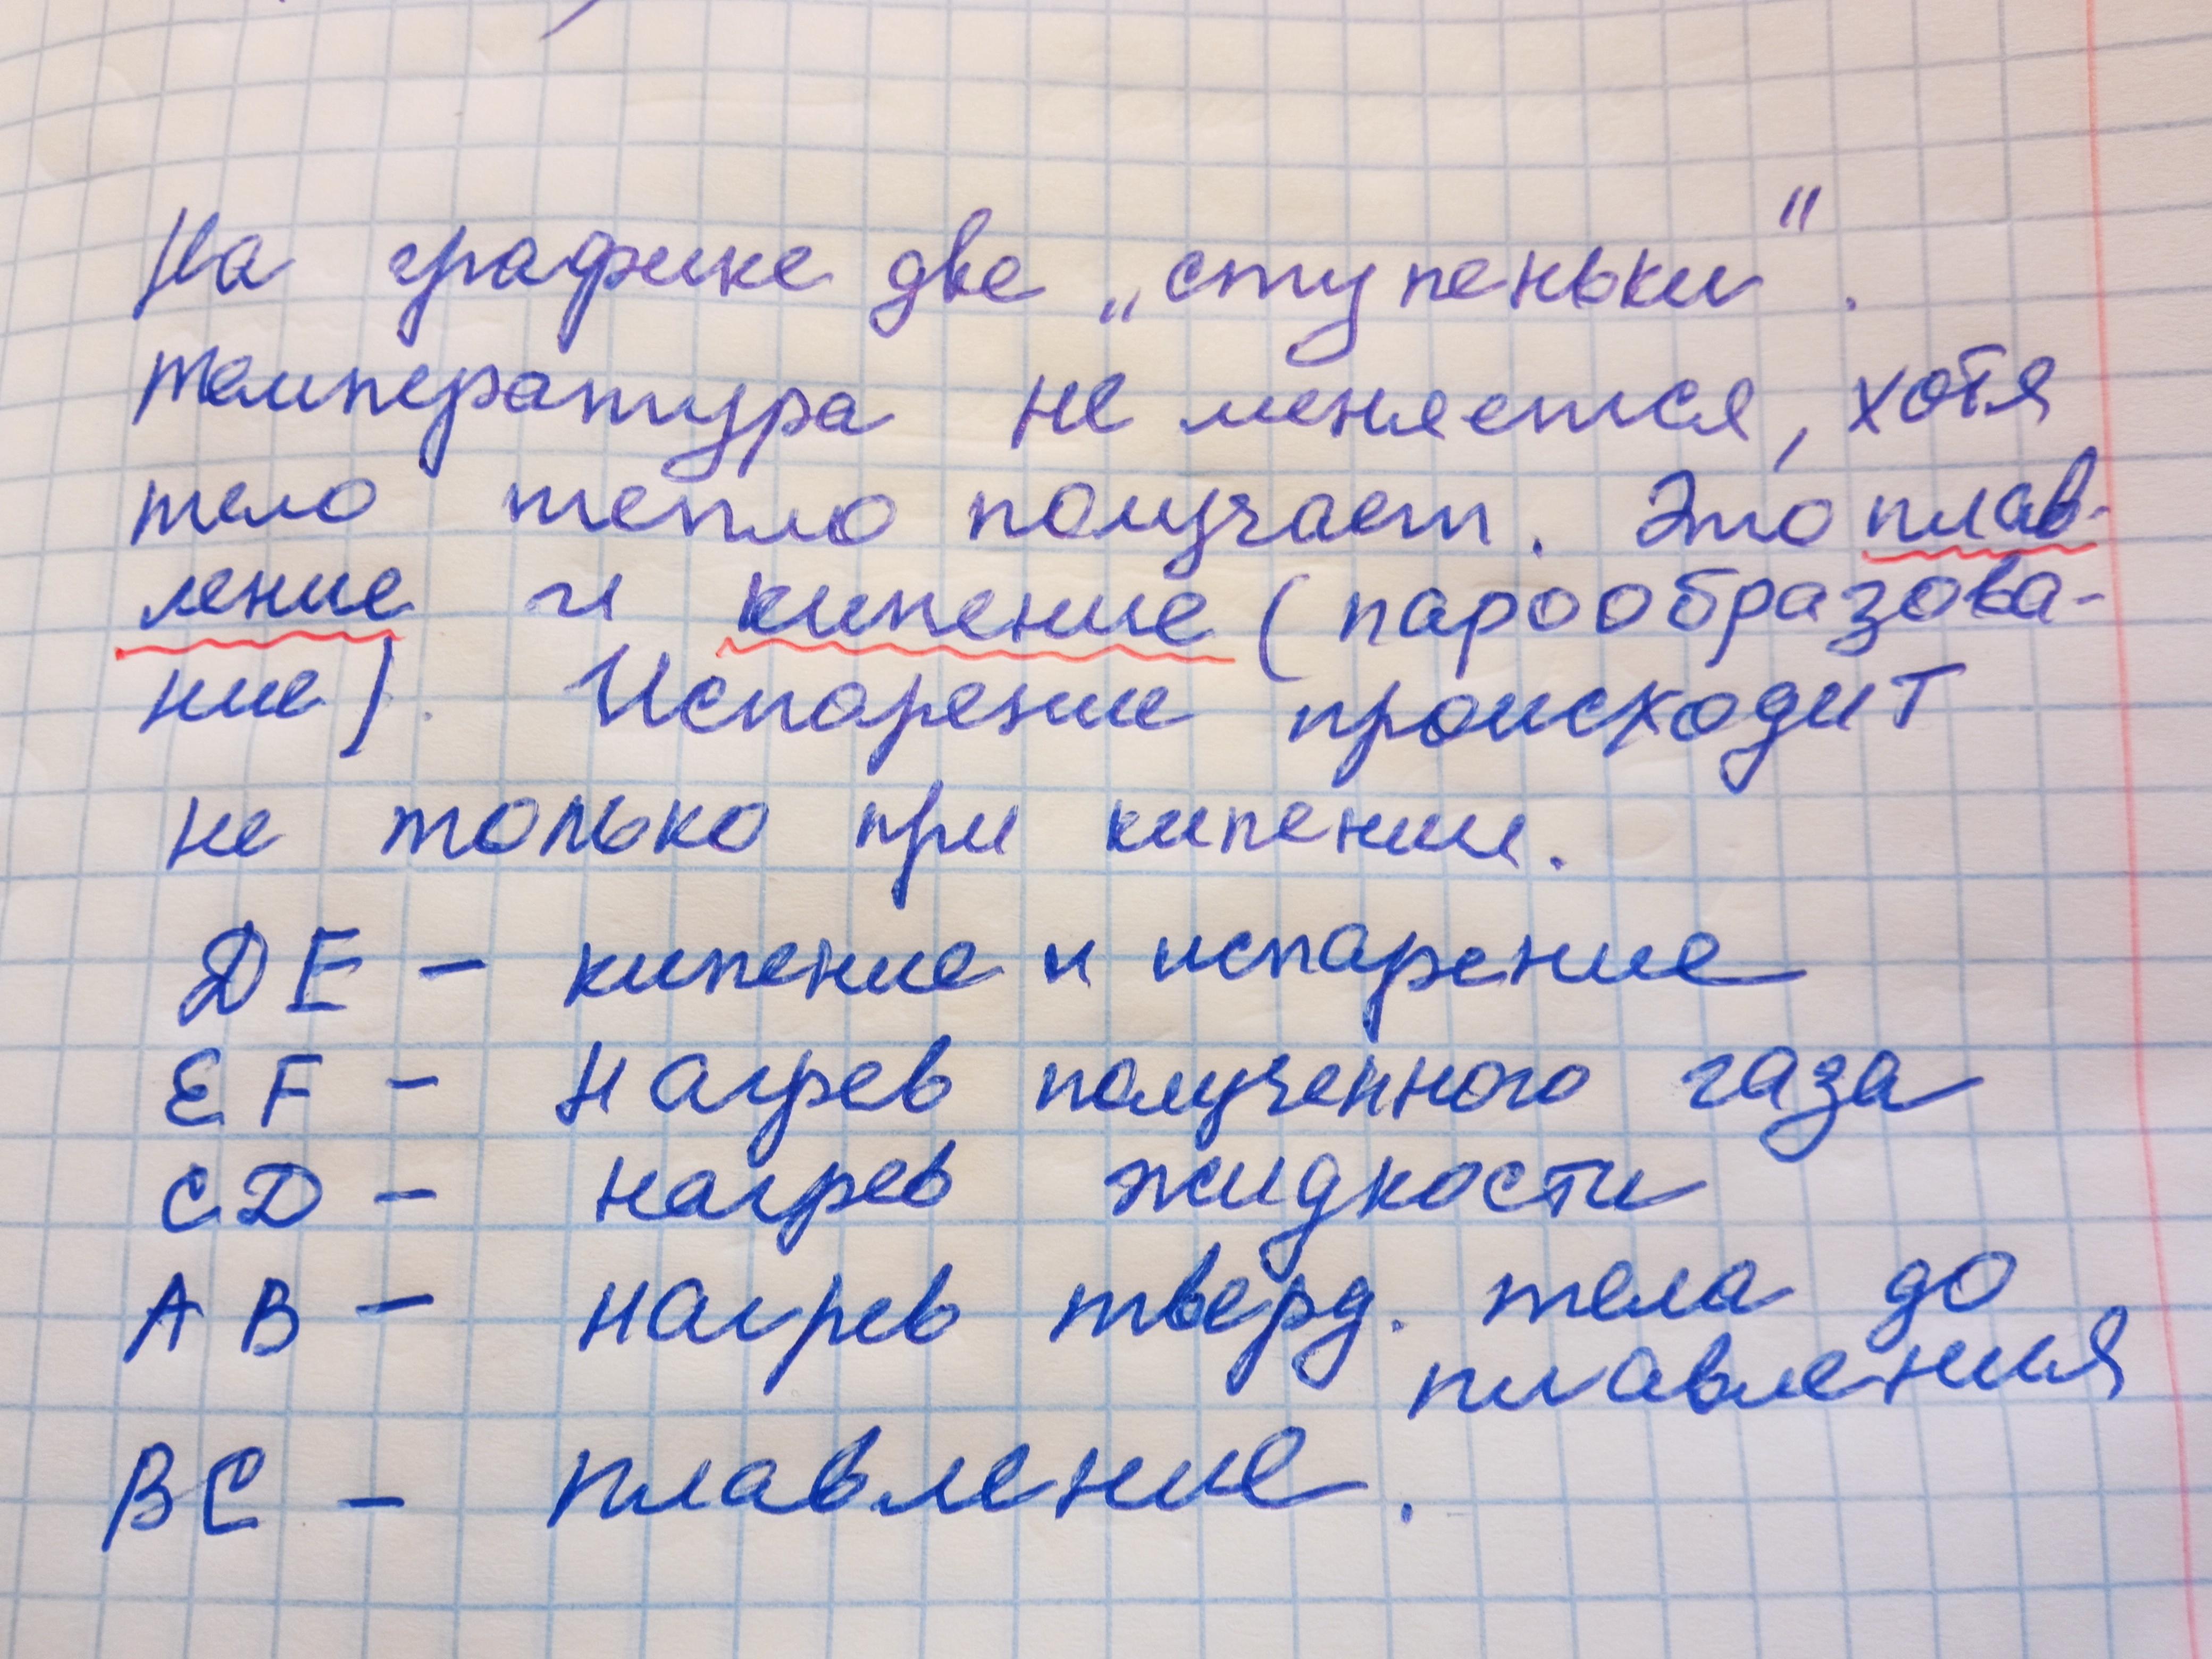 На графике две „ступеньки".
Температура не меняется, хотя
тело тепло получает. Это плав-
ление и кипение (парообразова-
ние). Испарение происходит
не только при кипении.
DE – кипение и испарение
EF – Нагрев полученного газа
CD – нагрев жидкости
AB – нагрев тверд. тела до
плавления
BC – плавление.